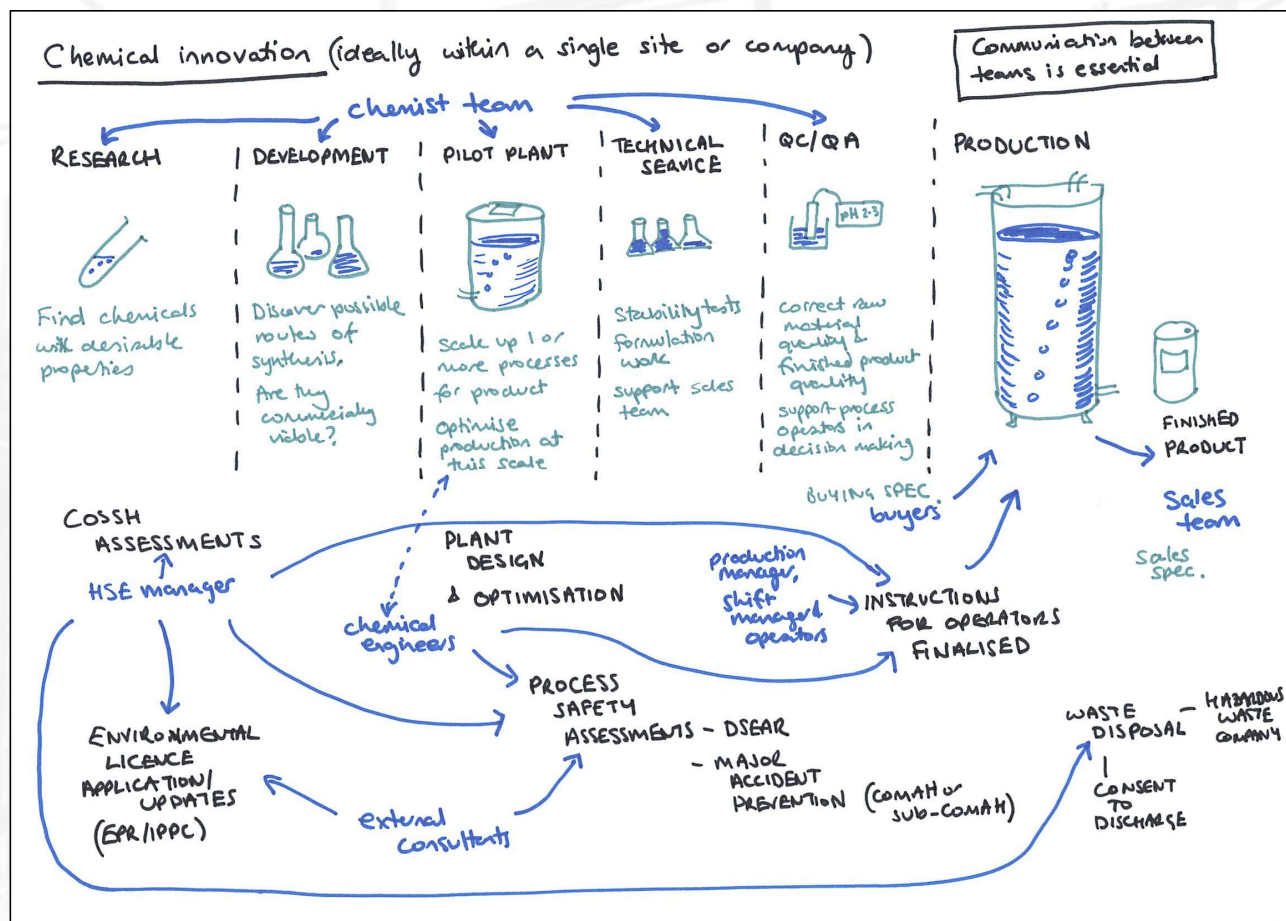 Chemical innovation (ideally within a single site or company)
Communication between
teams is essential
chemist team
RESEARCH
Find chemicals
with desirable
properties
DEVELOPMENT
Discover possible
routes of
synthesis.
Are they
commercially
viable?
PILOT PLANT
Scale up 1 or
more processes
for product
Optimise
production at
this scale
TECHNICAL
SERVICE
Stability tests
formulation
work
support sales
team
QC/QA
pH 2.3
correct raw
material
quality &
finished product
quality
support process
operators in
decision making
PRODUCTION
FINISHED
PRODUCT
Sales
team
Sales
spec.
BUYING SPEC.
buyers
COSSH
ASSESSMENTS
HSE manager
PLANT
DESIGN
& OPTIMISATION
chemical
engineers
production
manager,
shift
manager &
operators
INSTRUCTIONS
FOR OPERATORS
FINALISED
PROCESS
SAFETY
ASSESSMENTS - DSEAR
- MAJOR
ACCIDENT
PREVENTION (COMAH or
SUB-COMAH)
ENVIRONMENTAL
LICENCE
APPLICATION/
UPDATES
(EPR/IPPC)
external
consultents
WASTE
DISPOSAL
- HAZARDOUS
WASTE
COMPANY
| CONSENT
TO
DISCHARGE